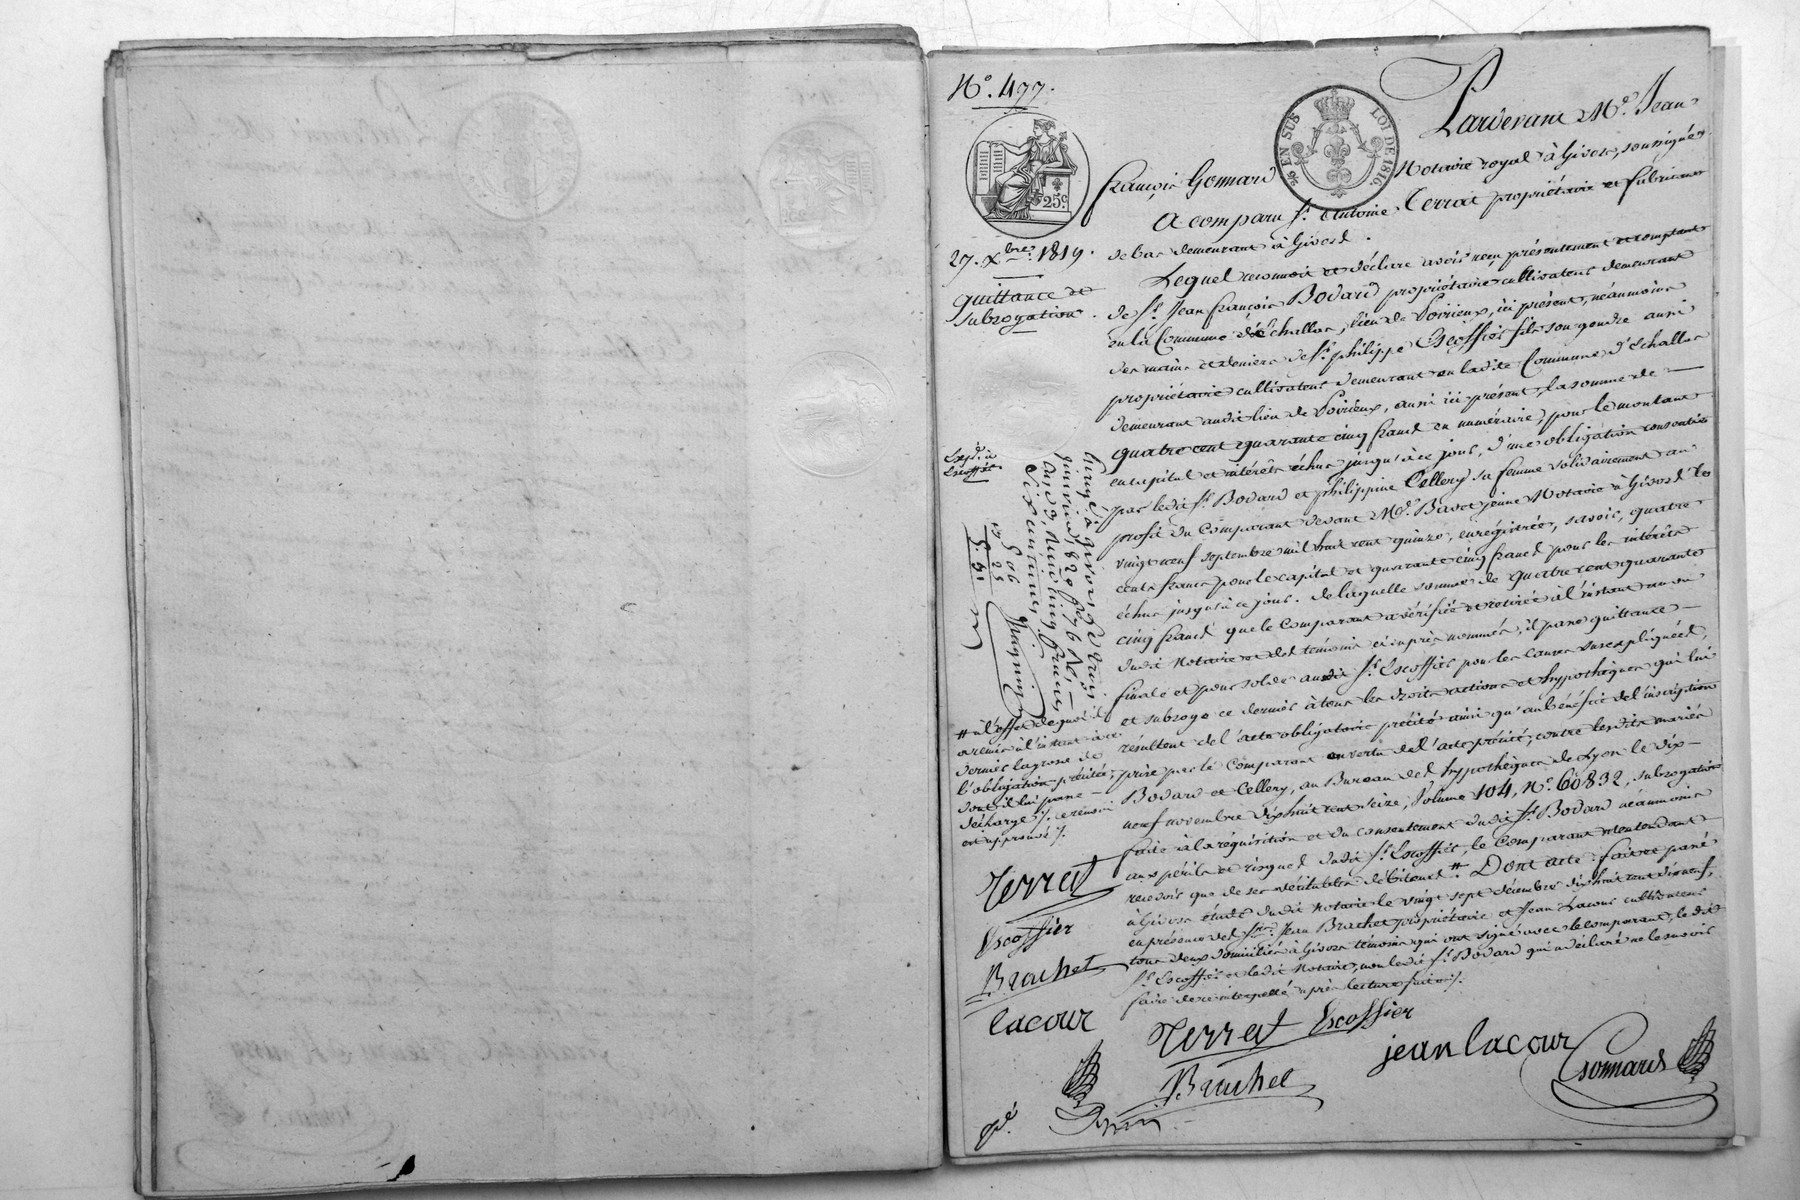 N.° 477.
EN SUS
LOI DE 1816.
25.c
Pardevant M.e Jean-
françois Gonnard Notaire royal à Givors, soussigné,
A comparu S.r Antoine Terrat propriétaire et fabricant
de bas demeurant à Givors.
27. Xbre 1819.
quittance et
subrogation.
Lequel reconnoit et déclare avoir reçu présentement et comptant
de S.r Jean françois Bodard propriétaire cultivateur demeurant
en la Commune d'échallas, lieu de Voirieux, ici présent, néanmoins
des mains et deniers de S.r philippe Escoffier fils son gendre aussi
propriétaire cultivateur demeurant en ladite Commune d'Echallas
demeurant audit lieu de Voirieux, aussi ici présent, la somme de
quatre cent quarante cinq francs en numéraire, pour le montant
en capital et intérêts échus jusqu'à ce jour, d'une obligation consentie
par ledit S.r Bodard et philippine Cellery sa femme solidairement au
profit du Comparant devant M.e Bavet jeune Notaire à Givors le
vingt neuf septembre mil huit cent quinze, enregistrée, savoir, quatre
cents francs pour le capital et quarante cinq francs pour les intérêts
échus jusqu'à ce jour. de laquelle somme de quatre cent quarante
cinq francs que le Comparant a vérifiée et retirée à l'instant au vu
dudit Notaire et des témoins ci après nommés, il passe quittance
finale et pour solde audit S.r Escoffier pour les causes susexpliquées,
et subroge ce dernier à tous les droits actions et hypothèques qui lui
résultent de l'acte obligatoire précité ainsi qu'au bénéfice de l'inscription
prise par le Comparant en vertu de l'acte précité, contre lesdits mariés
Bodard et Cellery, au Bureau des hypothèques de Lyon le dix-
neuf novembre dix huit cent seize, Volume 104, N.° 60832, subrogation
faite à la réquisition et du consentement dudit S.r Bodard néanmoins
aux périls et risques dudit S.r Escoffier, le Comparant n'entendant
recevoir que de ses véritables débiteurs #. Dont acte: fait et passé
à Givors étude dudit Notaire le vingt sept décembre dix huit cent dix neuf,
en présence des S.rs Jean Brachet propriétaire et Jean Lacour cultivateur
tous deux domiciliés à Givors témoins qui ont signé avec le comparant, ledit
S.r Escoffier et ledit Notaire, non ledit S.r Bodard qui a déclaré ne le savoir
faire de ce interpellé après lecture faite./.
Expé. à
Escoffier
Enregé. à givors le trois
janvier 1820 f.° 76 R.°,
reçu cinq francs
six centimes
# à l'effet de quoi il
a remis à l'instant à ce
dernier la grosse de
l'obligation précitée,
dont il lui passe
décharge ./. ce renvoi
est approuvé ./.
Terrat
Escoffier
Brachet
lacour
Terrat Escoffier
Brachet
jean lacour
Gonnard